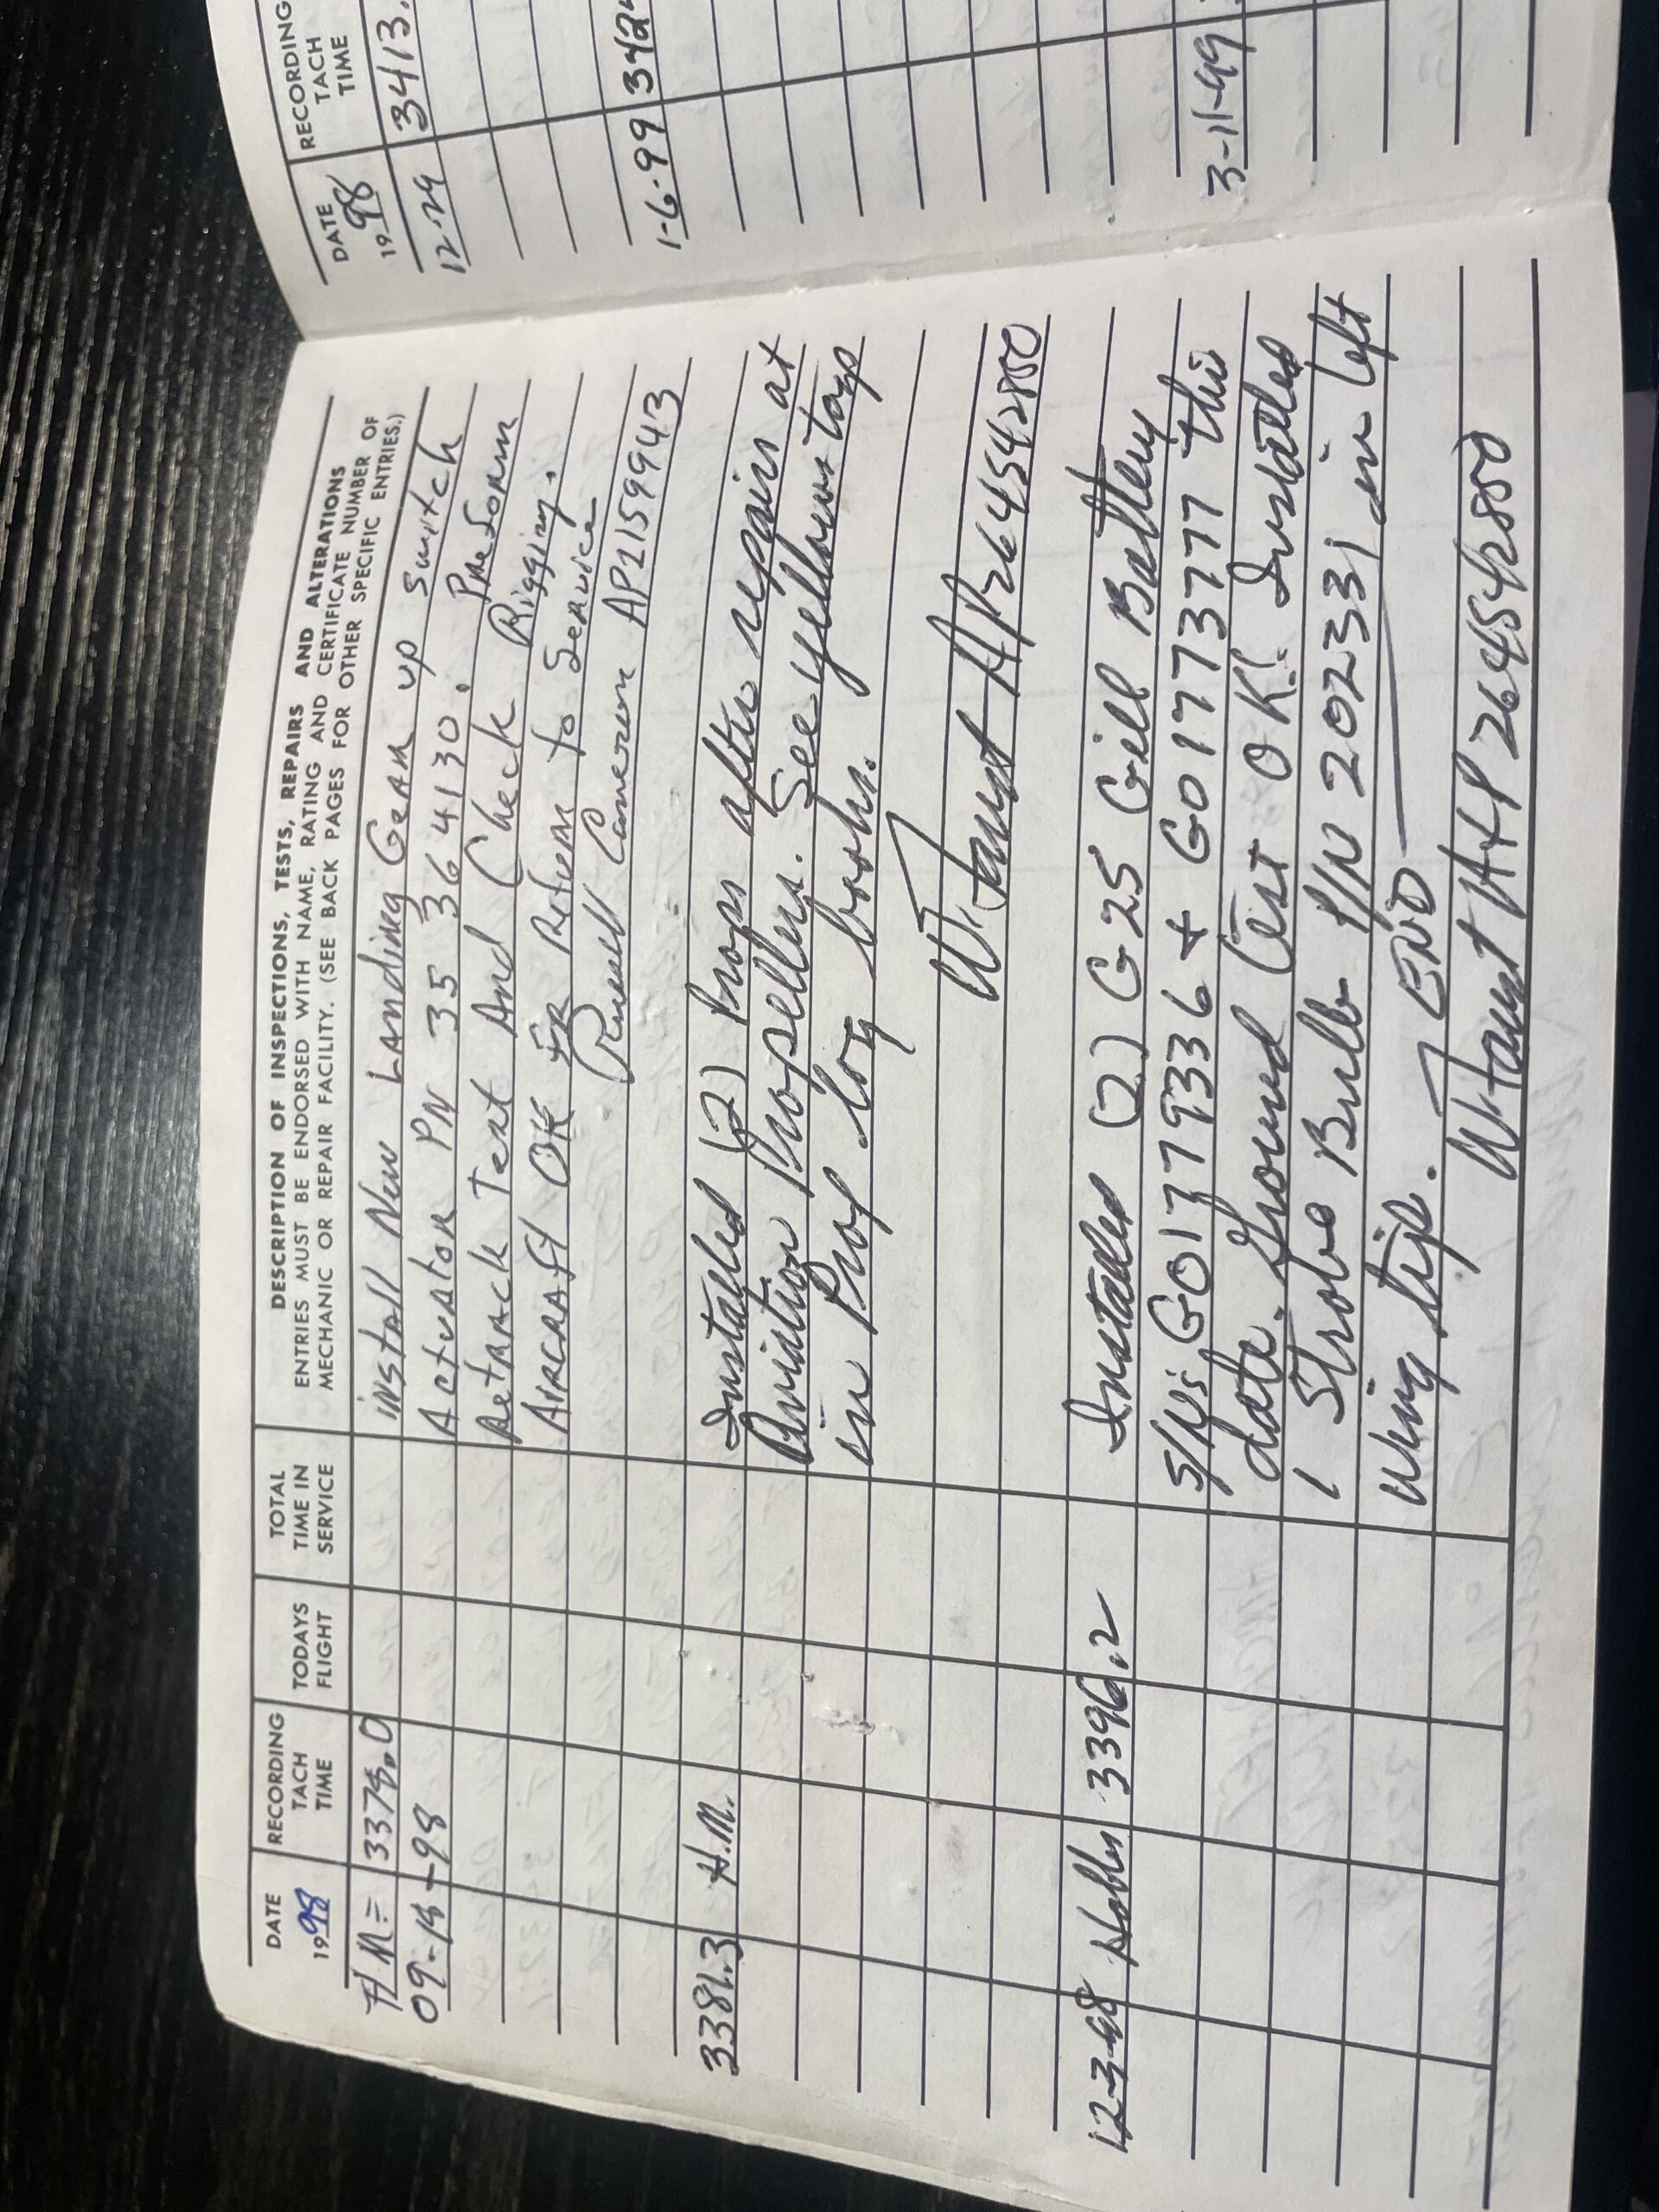 DATE
1998
RECORDING
TACH
TIME
TODAYS
FLIGHT
TOTAL
TIME IN
SERVICE
DESCRIPTION OF INSPECTIONS, TESTS, REPAIRS AND ALTERATIONS
ENTRIES MUST BE ENDORSED WITH NAME, RATING AND CERTIFICATE NUMBER OF
MECHANIC OR REPAIR FACILITY. (SEE BACK PAGES FOR OTHER SPECIFIC ENTRIES.)
H M = 3378.0 install New Landing Gear up switch
09-18-98 Actuator PN 35 364130. Preform
Retrack Test And Check Rigging.
Aircraft OK FR Return to Service
Russell AP2159943
3381.3 H.M. Installed (2) Props after repairs at
Aviation Propellers. See yellow tags
in Prop log books.
W. Faust AP264542800
12-3-98 Hobbs 3396.2 Installed (2) G-25 Gill Battery
S/N's G01379336 & G01773777 this
date. Ground test OK. Installed
1 Strobe Bulb P/N 202331 in left
wing tip. END
W. Faust A&P 264542800
DATE
1998
RECORDING
TACH
TIME
12-29 3413.
1-6-99 342
3-11-99